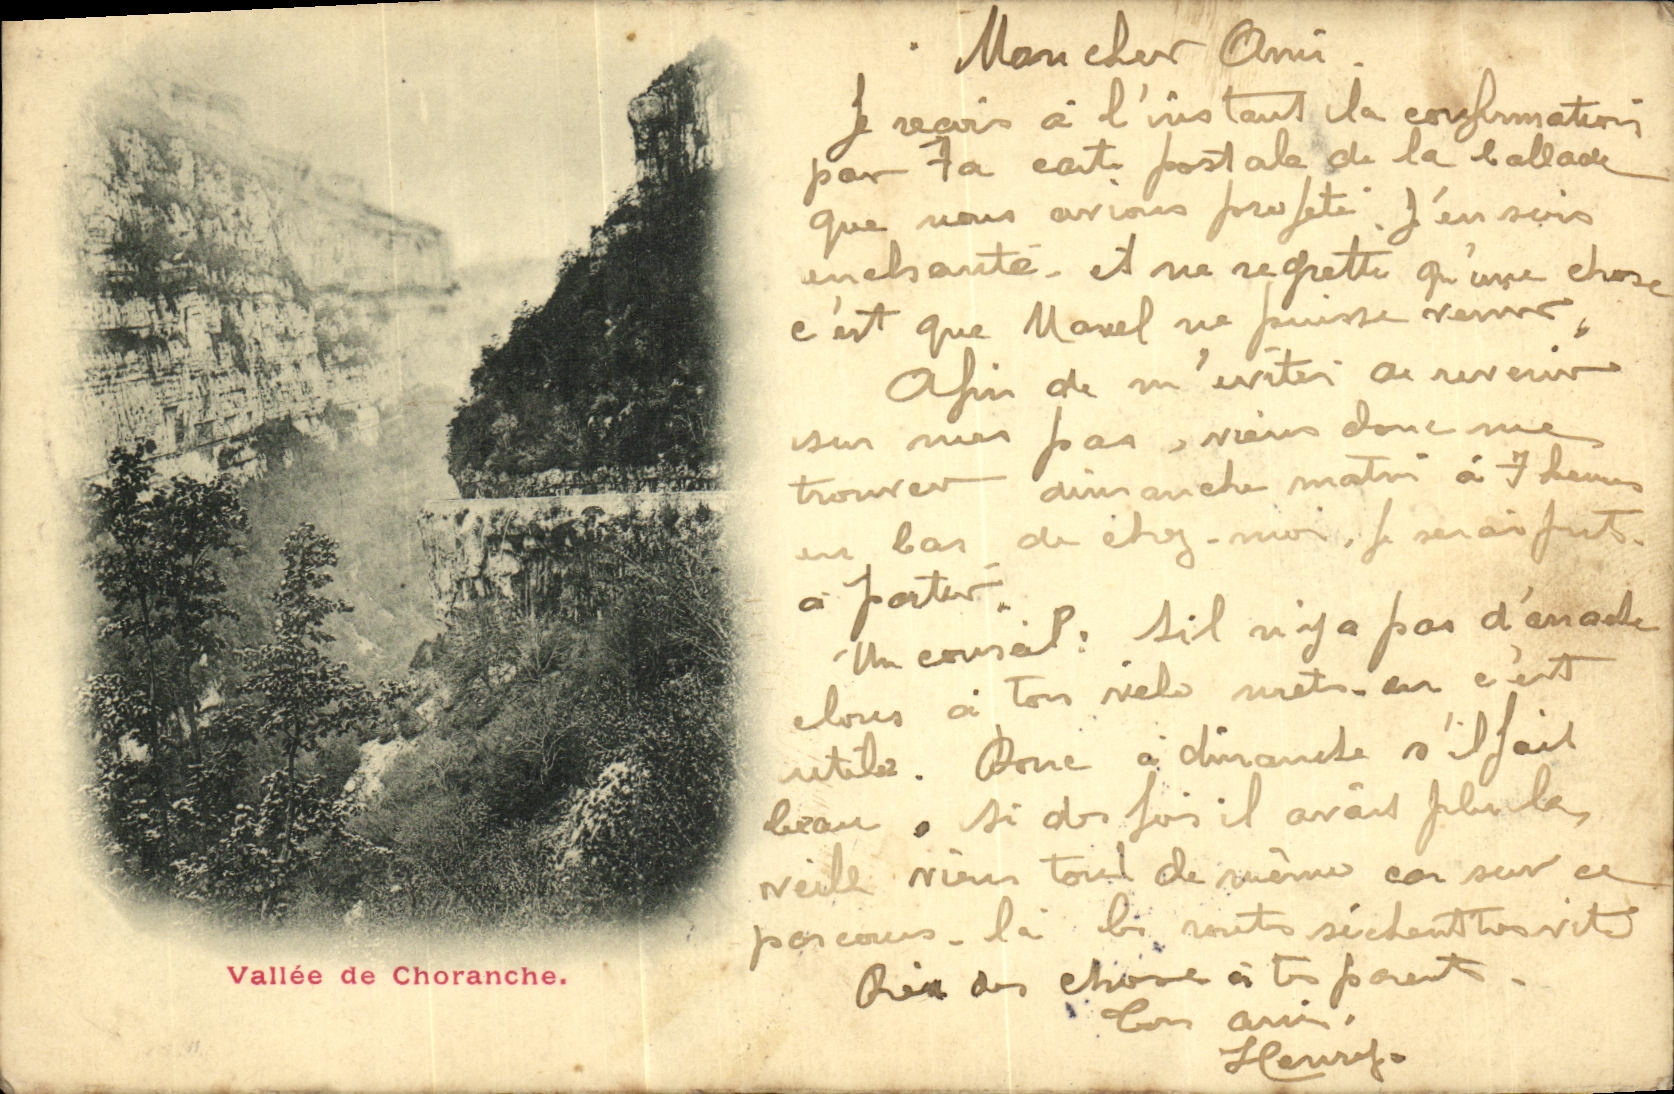 Mon cher Ami.
Je reçois à l'instant la confirmation
par Ta carte postale de la ballade
que nous avions projeté. J'en suis
enchanté - et ne regrette qu'une chose
c'est que Marcel ne puisse venir.
Afin de m'eviter de revenir
sur mes pas, viens donc me
trouver dimanche matin à 7 heures
en bas de chez-moi. Je serai prêt.
à partir.
Un conseil: Sil n'y a pas d'arrache
clous à ton vélo mets-en c'est
utile. Donc à dimanche s'il fait
beau. Si des fois il avait plu la
veille viens tout de même car sur ce
parcours-là les routes sèchent très vite
Bien des choses à tes parents.
Ton ami.
Henry.
Vallée de Choranche.